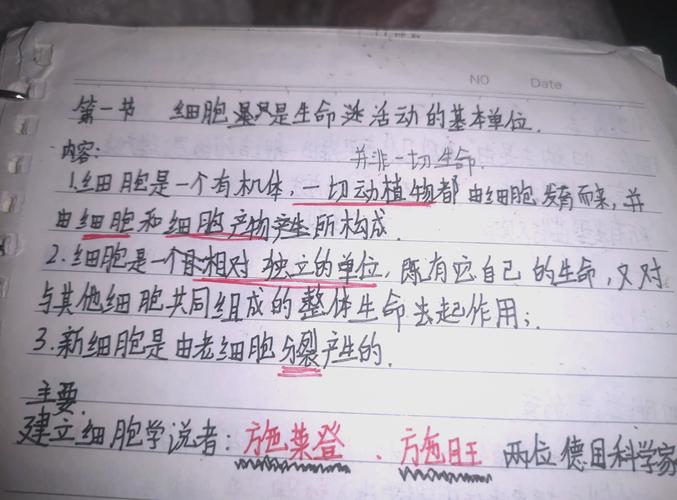 NO Date
第一节 细胞是生命活动的基本单位.
内容: 并非一切生命.
1.细胞是一个有机体,一切动植物都由细胞发育而来,并
由细胞和细胞产物产生所构成.
2.细胞是一个相对独立的单位,既有它自己的生命,又对
与其他细胞共同组成的整体生命去起作用;.
3.新细胞是由老细胞分裂产生的.
主要.
建立细胞学说者:施莱登、施旺 两位德国科学家